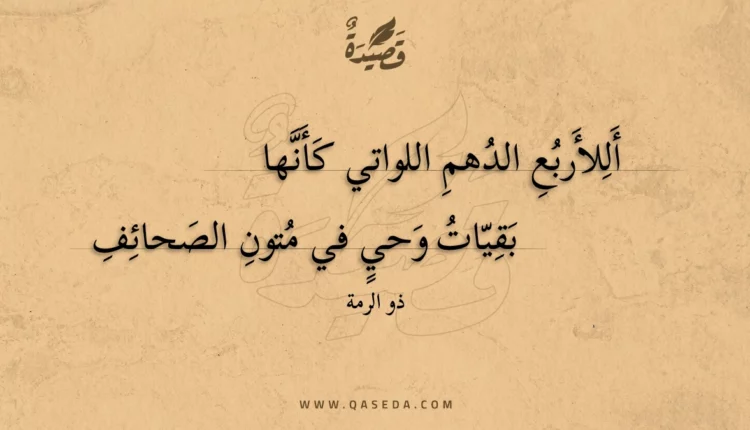 قَصِيدَةٌ
أَلِلأَربُعِ الدُهمِ اللواتي كَأَنَّها
بَقِيّاتُ وَحيٍ في مُتونِ الصَحائِفِ
ذو الرمة
WWW.QASEDA.COM